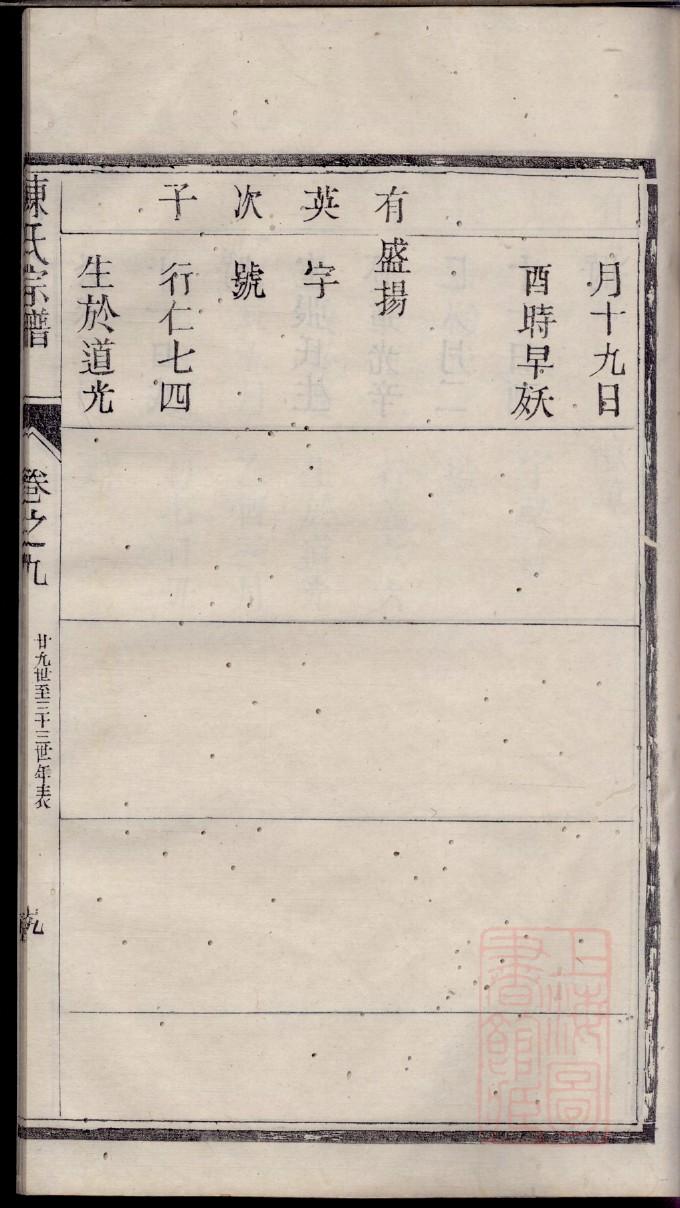 月十九日
酉時早殀
有
盛揚
英
字
次
號
子
行仁七四
生於道光
陳氏宗譜
卷之九
廿九世至三十三世年表
上海圖
書館藏